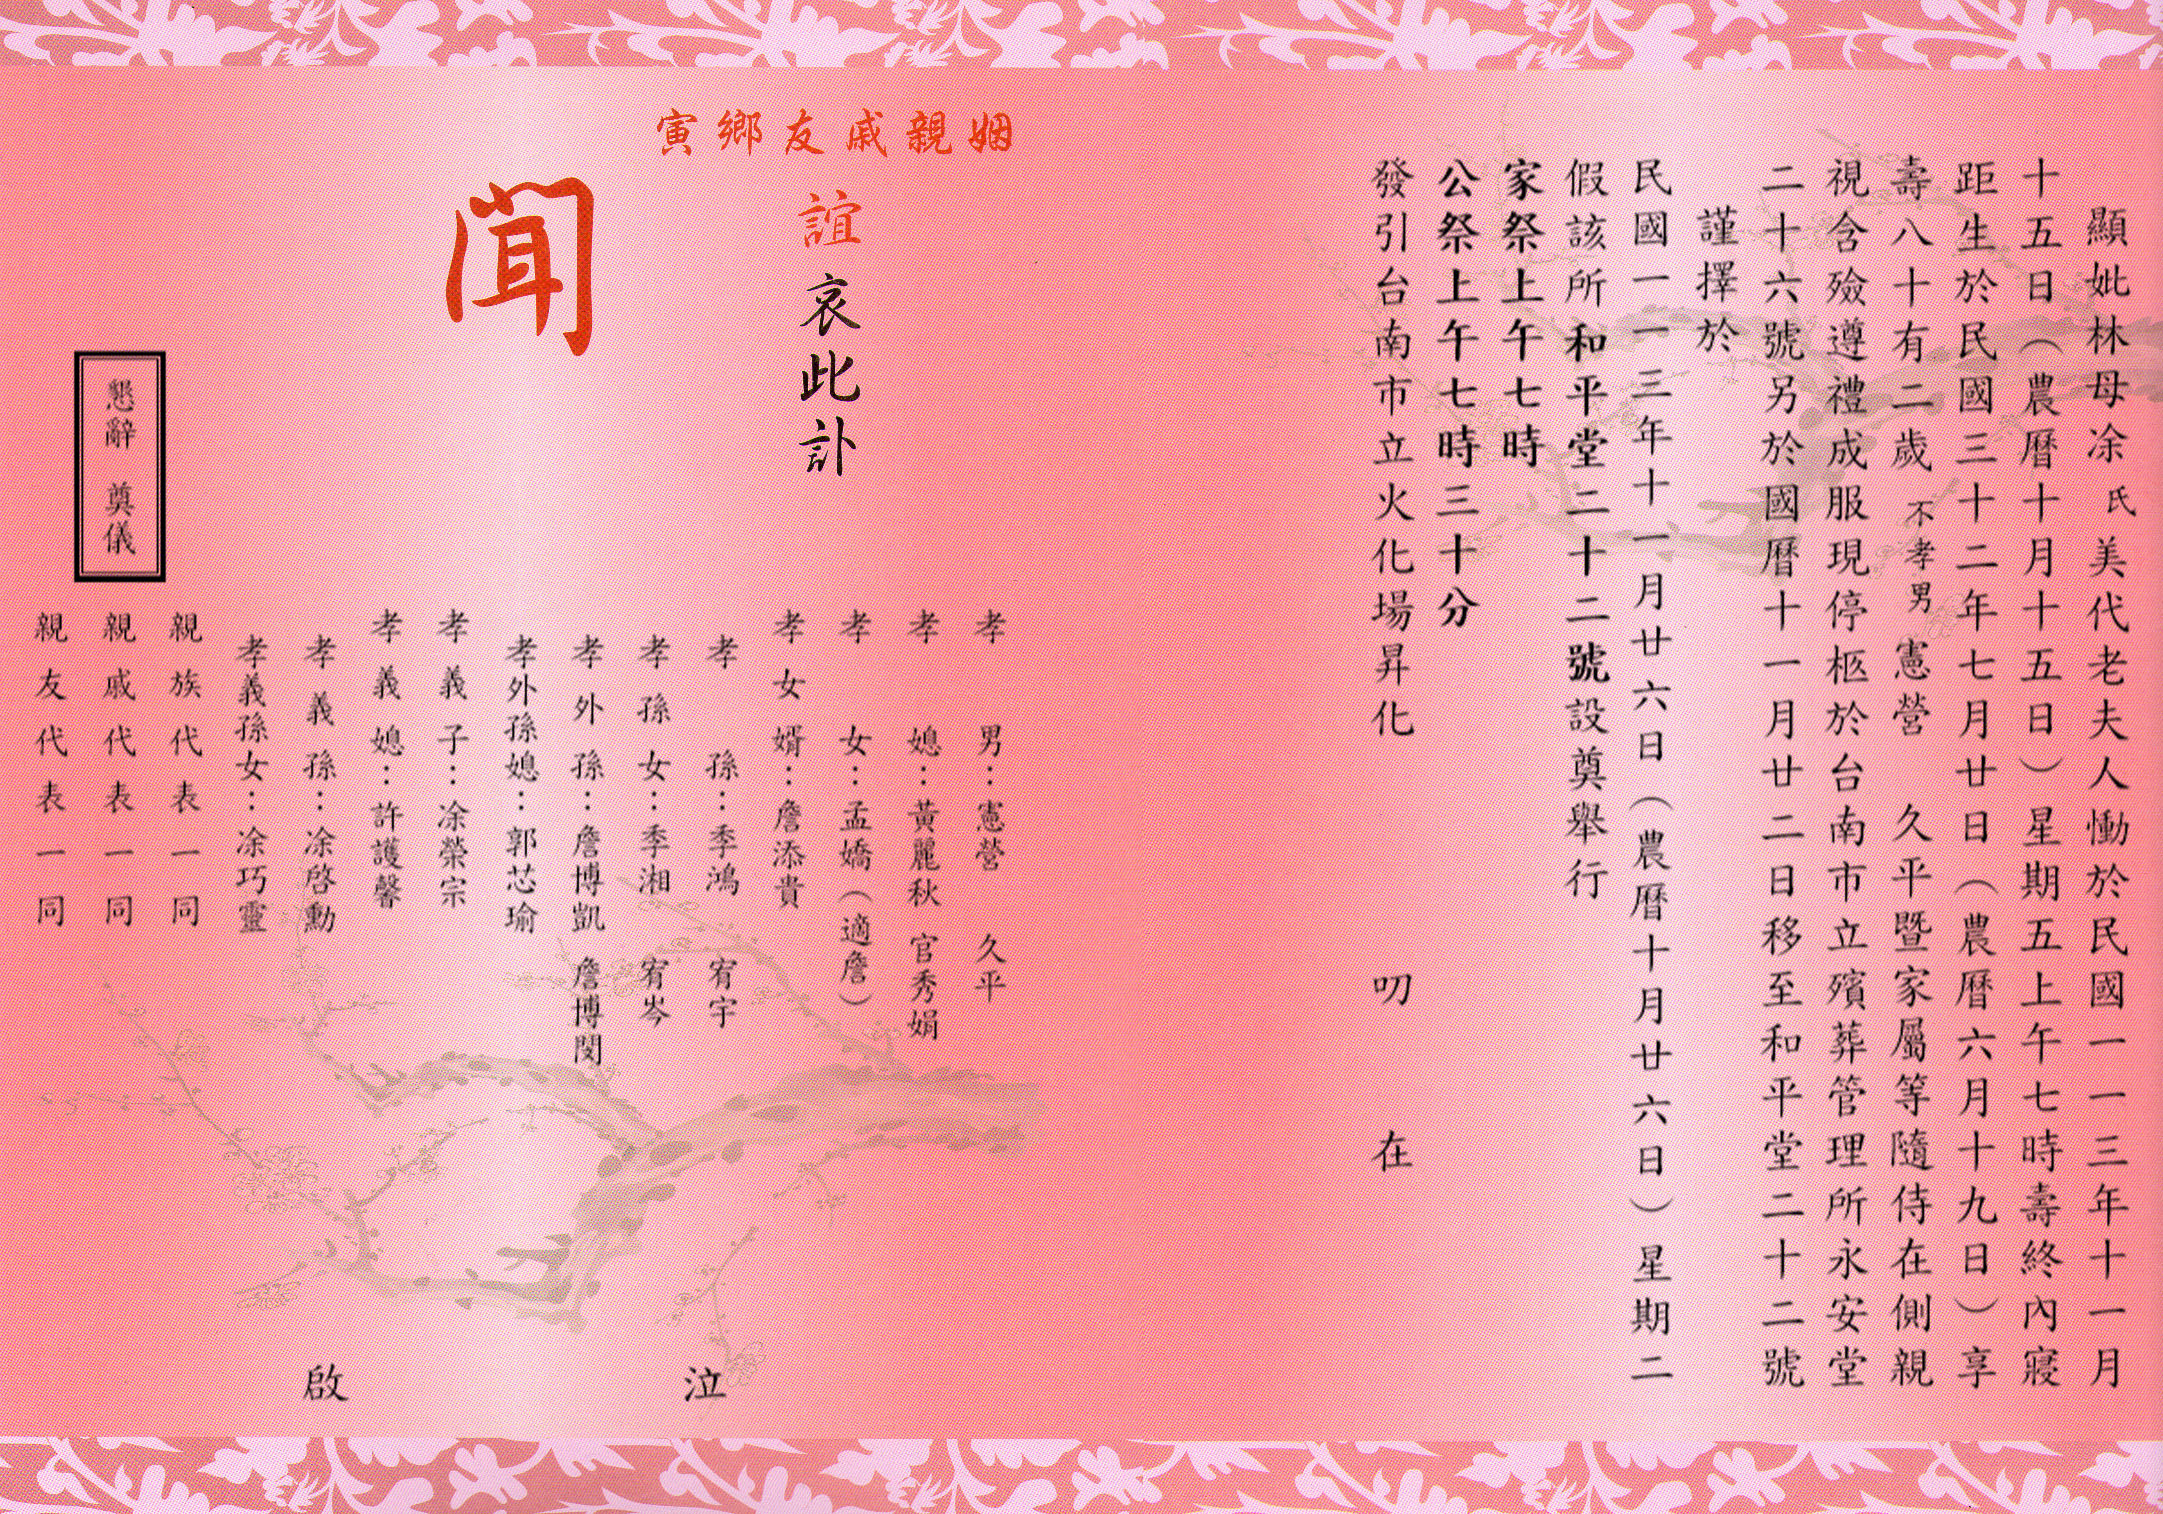 顯妣林母凃氏美代老夫人慟於民國一一三年十一月
十五日（農曆十月十五日）星期五上午七時壽終內寢
距生於民國三十二年七月廿日（農曆六月十九日）享
壽八十有二歲不孝男憲營　久平暨家屬等隨侍在側親
視含殮遵禮成服現停柩於台南市立殯葬管理所永安堂
二十六號另於國曆十一月廿二日移至和平堂二十二號
謹擇於
民國一一三年十一月廿六日（農曆十月廿六日）星期二
假該所和平堂二十二號設奠舉行
家祭上午七時
公祭上午七時三十分
發引台南市立火化場昇化　叨　在
姻親戚友鄉寅
誼哀此訃
聞
孝男：憲營　久平
孝媳：黃麗秋　官秀娟
孝女：孟嬌（適詹）
孝女婿：詹添貴
孝孫：季鴻　宥宇
孝孫女：季湘　宥岑
孝外孫：詹博凱　詹博閔
孝外孫媳：郭芯瑜
孝義子：凃榮宗
孝義媳：許護馨
孝義孫：凃啓勳
孝義孫女：凃巧靈
親族代表一同
親戚代表一同
親友代表一同
泣　啟
懇辭　奠儀